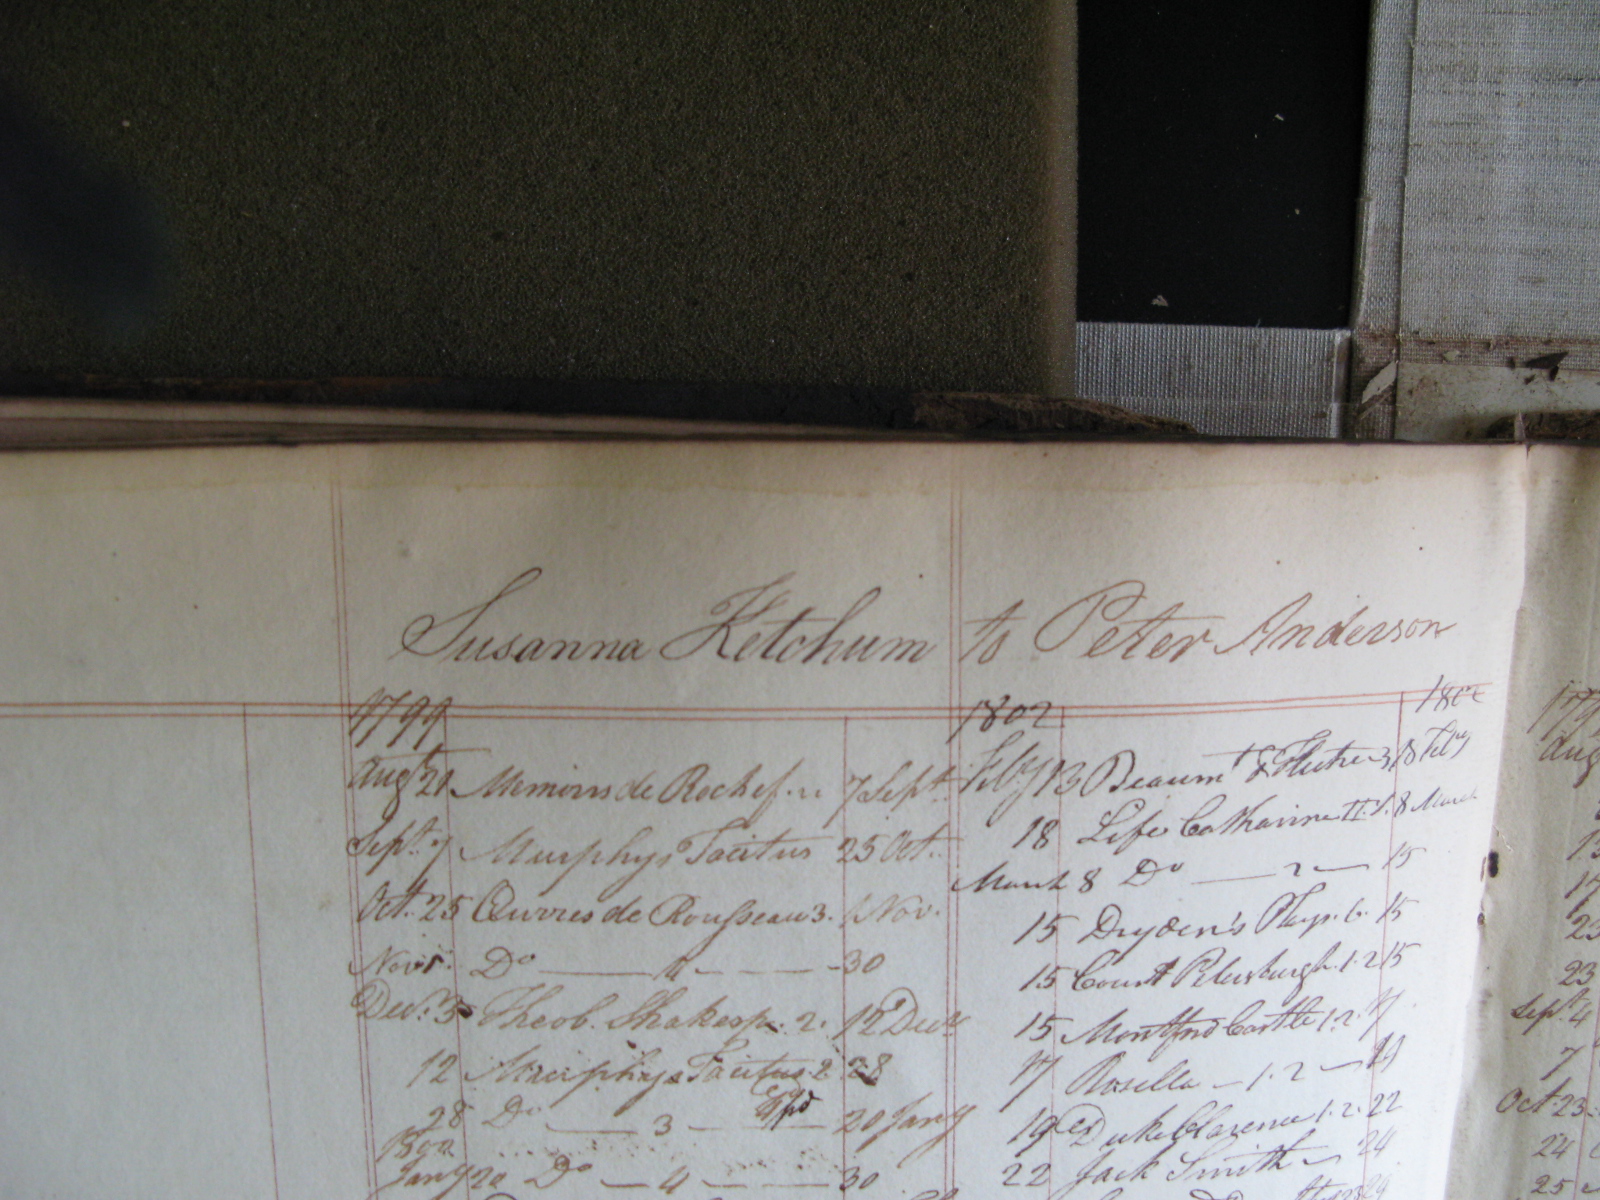 Susanna Ketchum to Peter Anderson
1799
Augt 21 Memoirs de Rochef. 7 Sept.
Sept. 7 Murphys Tacitus 25 Oct.
Oct. 25 Œuvres de Rousseau 3. 1 Nov.
Nov. 1 Do — 4 — 30
Dec. 3 Theob. Shakesp. 2. 12 Decr
12 Murphys Tacitus 2 28
28 Do — 3 — 20 Jany
1800
Jany 20 Do — 4 — 30
1802
1802
Feby 13 Beaumt & Fletcher 3 18 Feby
18 Life Catharine II. 1. 8 March
March 8 Do — 2 — 15
15 Dryden's Plays. 6. 15
15 Court Petersburgh. 1. 2 15
15 Castle 1. 2. 17
17 Rosella — 1. 2 — 19
19 Duke Clarence 1. 2. 22
22 Jack Smith — 24
179
Aug
17
23
23
Sept. 4
7
Oct. 23
24
25